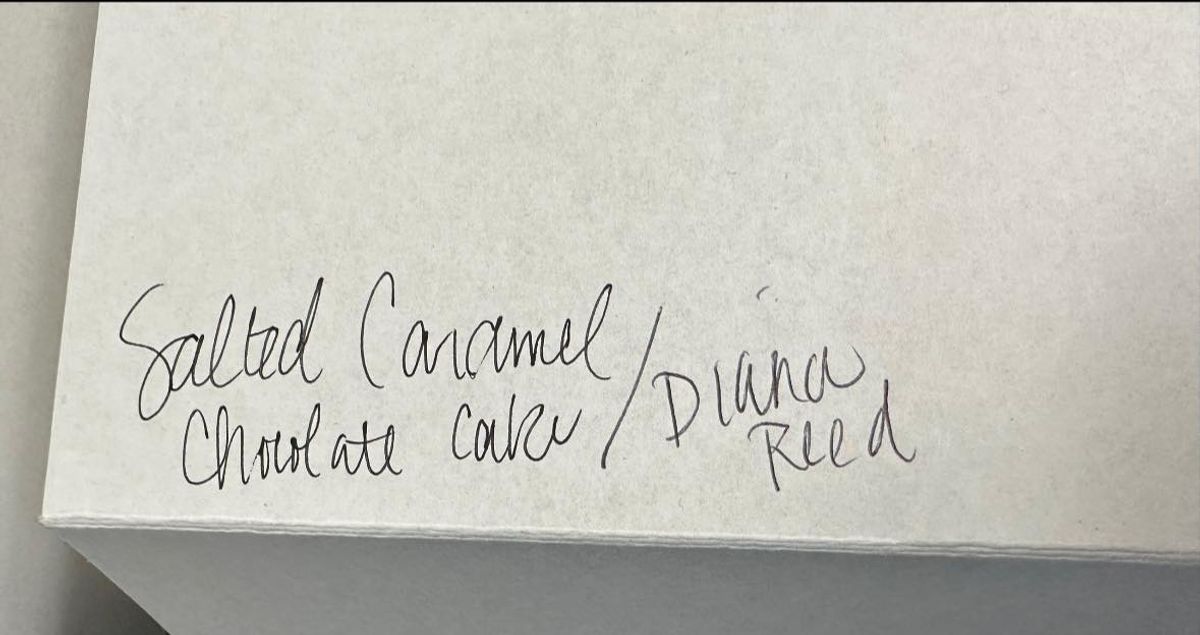 Salted Caramel
Chocolate Cake / Diana
Reed